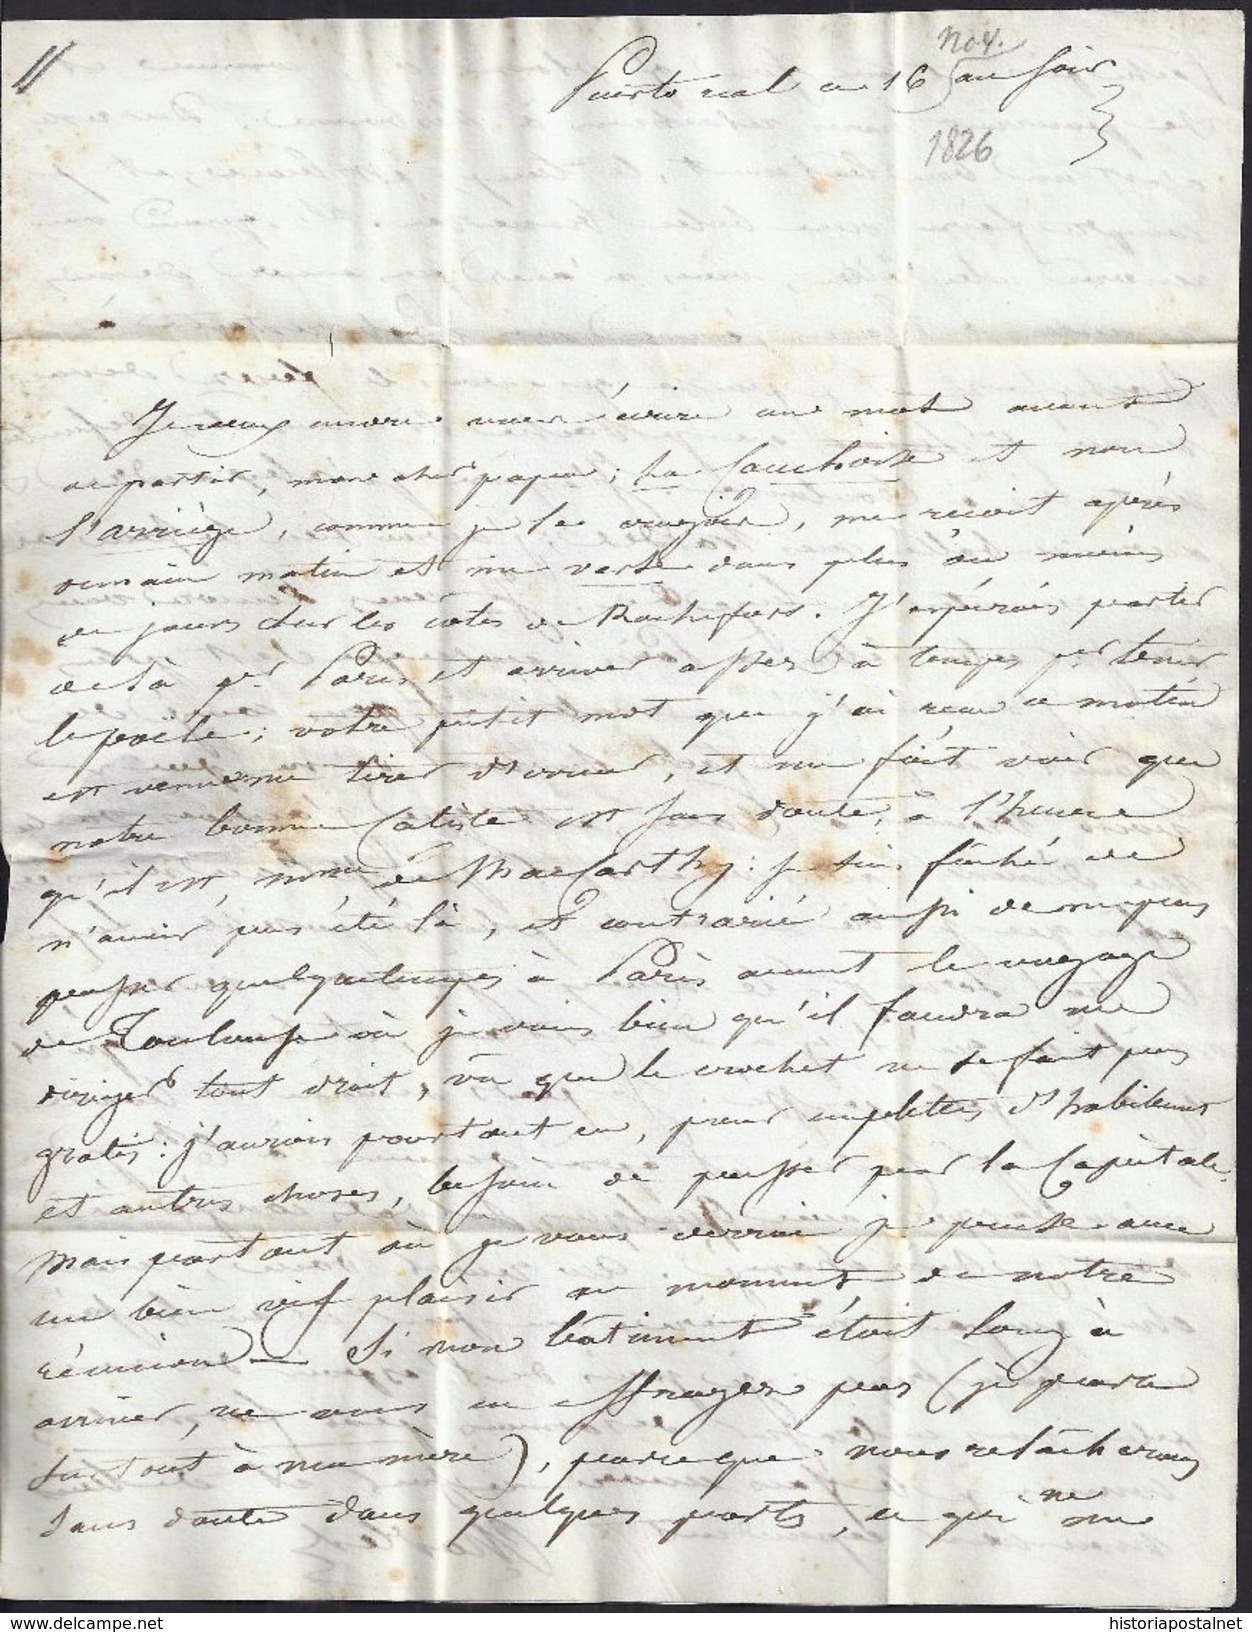 11
nov.
Puerto real ce 16 au soir
1826
Je veux encore vous écrire un mot avant
de partir, mon cher papa ; La Cauchoise et non
l'arriège, comme je le croyois, me reçoit après
demain matin et me verse dans plus ou moins
de jours sur les côtes de Rochefort. J'espérais partir
de là pr. Paris et arriver assez à temps pr. tenir
le poële ; votre petit mot que j'ai reçu ce matin
est venu me tirer d'erreur, et me fait voir que
notre bonne Calixte est sans doute, à l'heure
qu'il est, Mme de MacCarthy : je suis fâché de
n'avoir pas été là, et contrarié aussi de ne pas
passer quelque temps à Paris avant le voyage
de Toulouse où je vois bien qu'il faudra me
diriger tout droit, vu que le crochet ne se fait pas
gratis : j'aurois pourtant eu, pour emplettes d'habillemens
et autres choses, besoin de passer par la Capitale.
Mais partout où je vous verrai je pense avec
un bien vif plaisir au moment de notre
réunion — Si mon bâtiment étoit long à
arriver, ne vous en effrayez pas (je parle
surtout à ma mère), parce que nous relâcherons
sans doute dans quelques ports, ce qui ne me
historiapostalnet